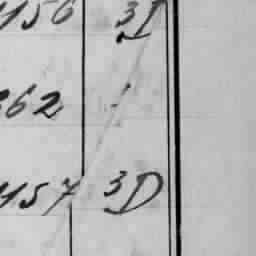 1156 3D
262
1157 3D